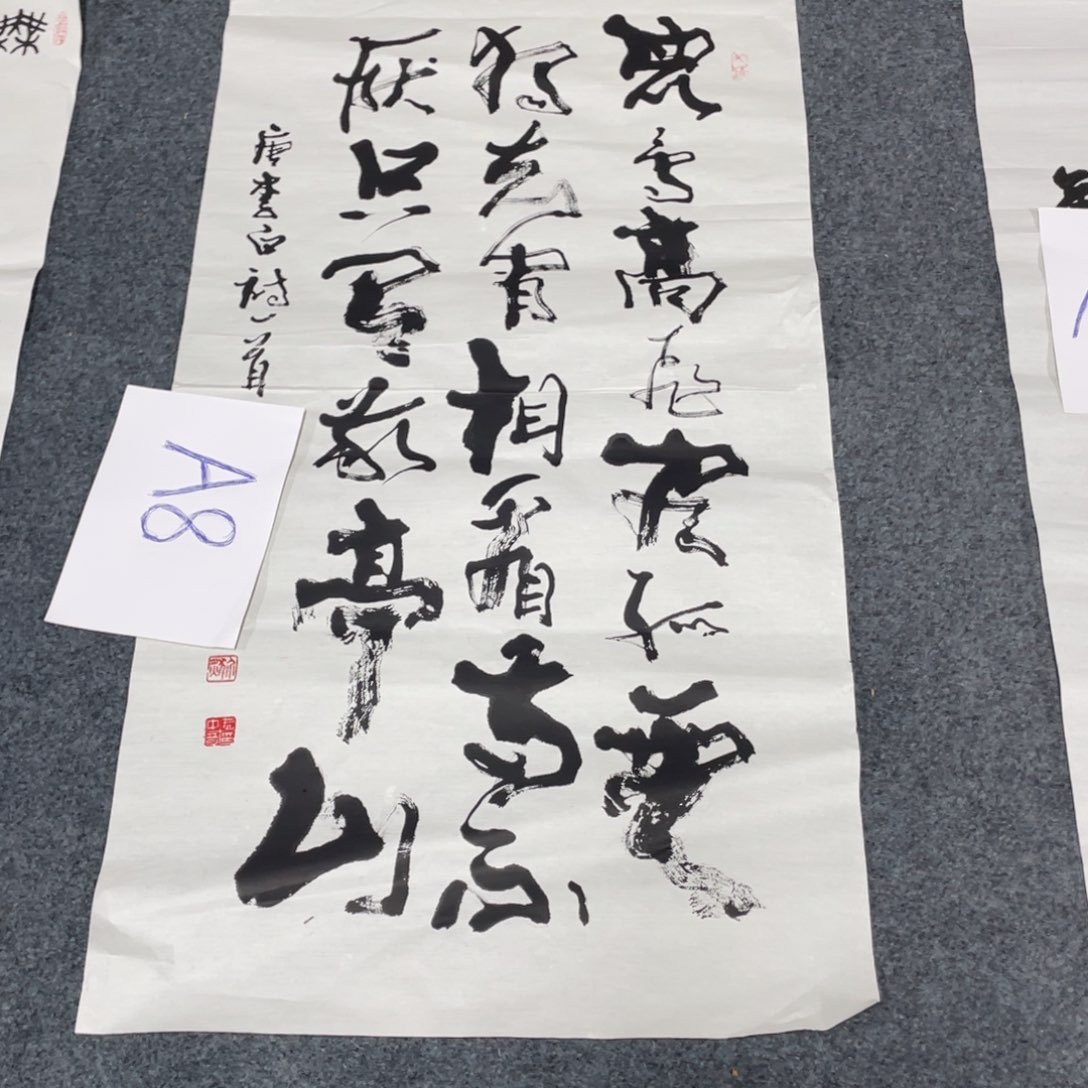 眾鳥高飛盡孤雲
獨去閒相看兩不
厭只有敬亭山
唐李白詩一首
A8